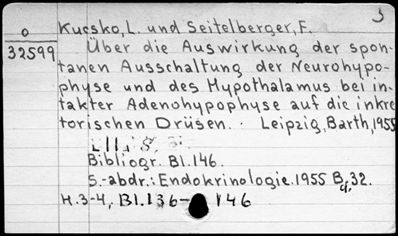 3
O
32599
Kucsko, L. und Seitelberger, F.
Über die Auswirkung der spon-
tanen Ausschaltung der Neurohypo-
physe und des Hypothalamus bei in-
takter Adenohypophyse auf die inkre
torischen Drüsen. Leipzig, Barth, 1955
Bibliogr. Bl. 146.
S.-abdr.: Endokrinologie. 1955 Bd, 32.
H. 3-4, Bl. 136-146